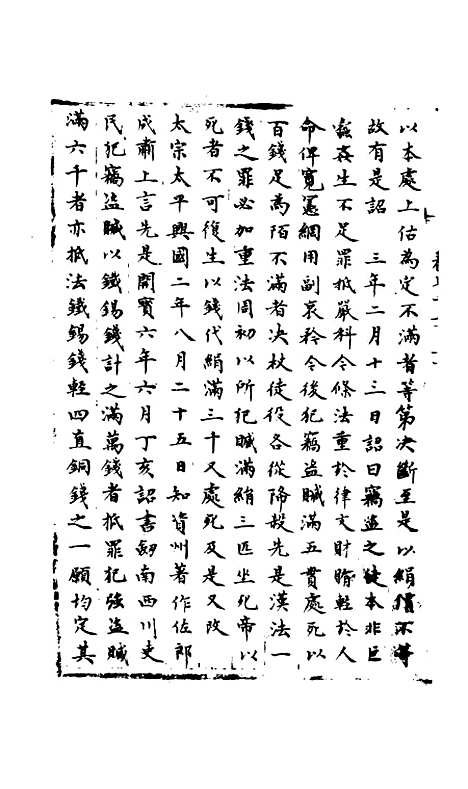 以本處上估為定不滿者等第決斷至是以絹價不等
故有是詔　三年二月十三日詔曰竊盜之徒本非巨
蠹姦生不足罪抵嚴科今條法重於律文財賄輕於人
命俾寬憲網用副哀矜今後犯竊盜贓滿五貫處死以
百錢足為陌不滿者决杖徒役各從降殺先是漢法一
錢之罪必加重法周初以所犯贓滿絹三匹坐死帝以
死者不可復生以錢代絹滿三千又處死及是又改
太宗太平興國二年八月二十五日知資州著作佐郎
成肅上言先是開寶六年六月丁亥詔書劒南西川吏
民犯竊盜贓以鐵錫錢計之滿萬錢者抵罪犯強盜贓
滿六千者亦抵法鐵錫錢輕四直銅錢之一願均定其